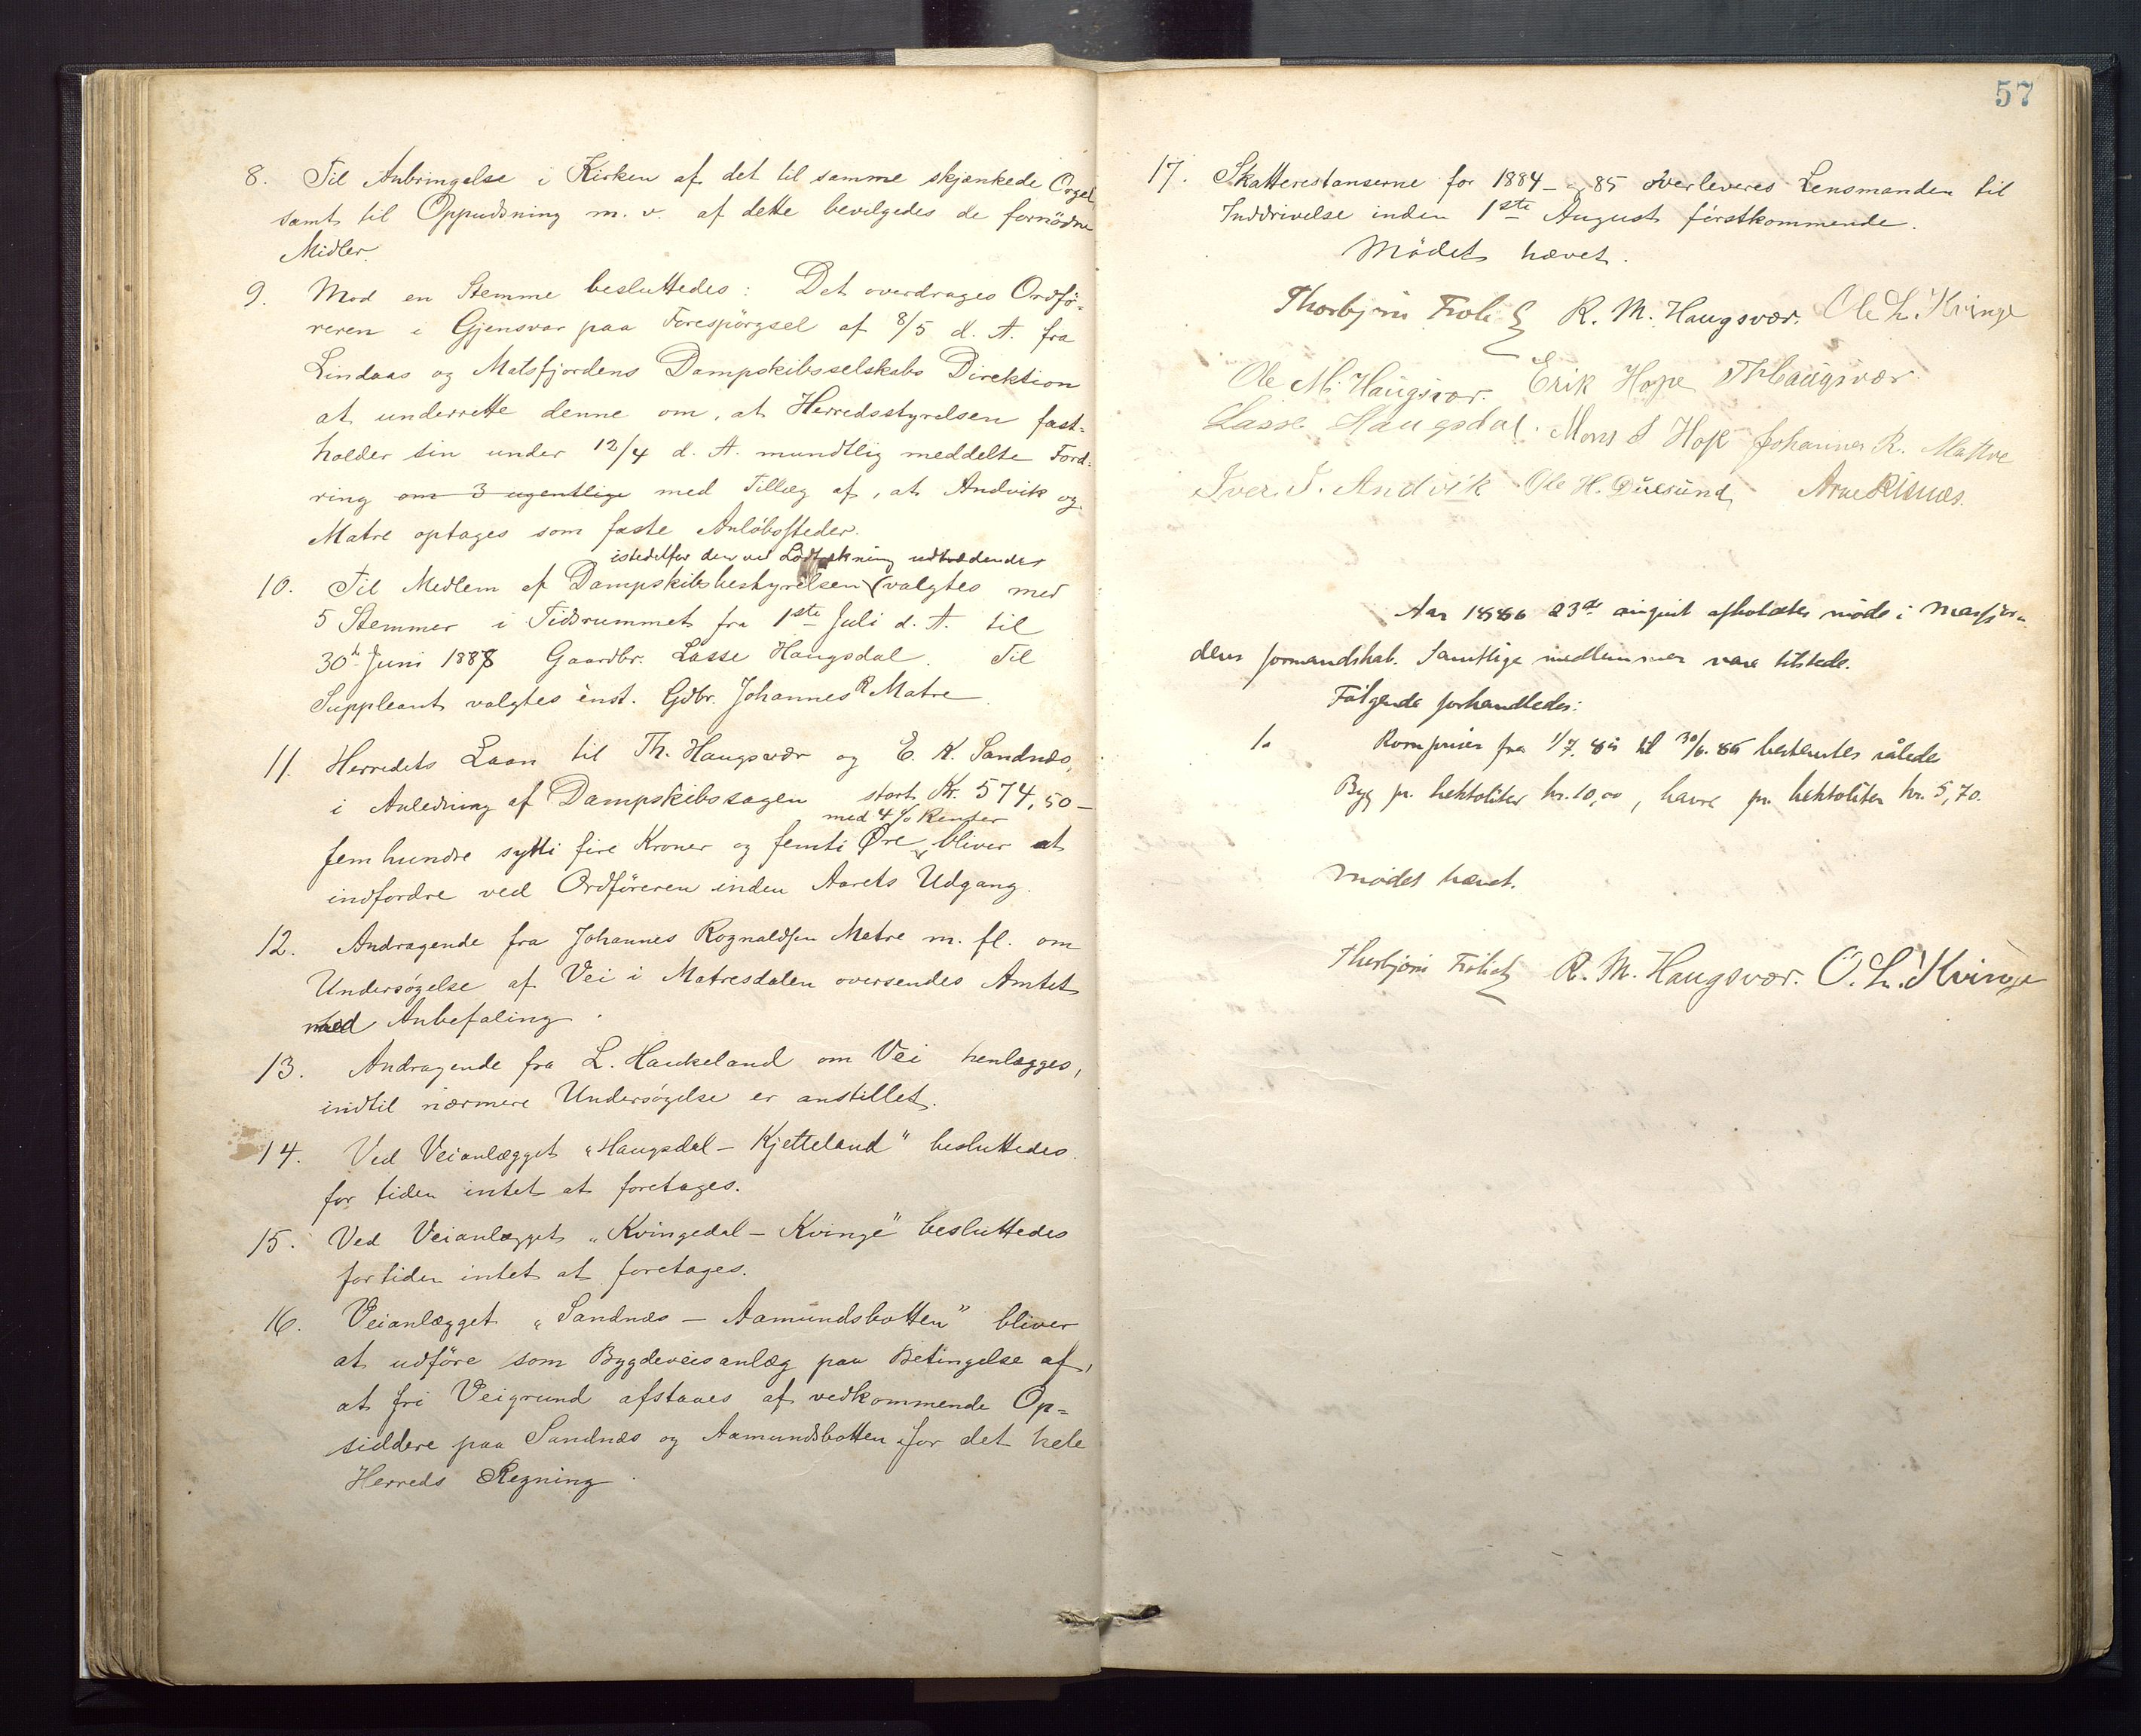 8. Til Anbringelse i Kirken af det til samme skjænkede Orgel,
samt til Oppudsning m. v. af dette bevilgedes de fornödne
Midler.
9. Mod en Stemme besluttedes: Det overdrages Ordfö-
reren i Gjensvar paa Forespörgsel af 8/5 d. A. fra
Lindaas og Matsfjordens Dampskibsselskabs Direktion
at underrette denne om, at Herredsstyrelsen fast-
holder sin under 12/4 d. A. mundtlig meddelte Ford-
ring om 3 ugentlige med Tillæg af, at Andvik og
Matre optages som faste Anlöbssteder.
istedetfor den ved Lodtrækning udtrædende
10. Til Medlem af Dampskibsbestyrelsen valgtes med
5 Stemmer i Tidsrummet fra 1ste Juli d. A. til
30te Juni 1888 Gaardbr. Lasse Haugsdal. Til
Suppleant valgtes enst. Gdbr. Johannes R Matre.
11. Herredets Laan til Th. Haugsvær og E. K. Sandnæs,
i Anledning af Dampskibssagen stort Kr. 574,50 –
med 4 % Renter
fem hundre sytti fire Kroner og femti Øre bliver at
indfordre ved Ordföreren inden Aarets Udgang.
12. Andragende fra Johannes Rognaldsen Matre m. fl. om
Undersøgelse af Vei i Matresdalen oversendes Amtet
med Anbefaling.
13. Andragende fra L. Haukeland om Vei henlægges,
indtil nærmere Undersøgelse er anstillet.
14. Ved Veianlægget "Haugsdal – Kjetteland" besluttedes
for tiden intet at foretages.
15. Ved Veianlægget "Kvingedal – Kvinge" besluttedes
for tiden intet at foretages.
16. Veianlægget "Sandnæs – Aamundsbotten" bliver
at udföre som Bygdeveisanlæg paa Betingelse af,
at fri Veigrund afstaaes af vedkommende Op-
siddere paa Sandnæs og Aamundsbotten for det hele
Herreds Regning.
57
17. Skatterestanserne for 1884 – og 85 overleveres Lensmanden til
Inddrivelse inden 1ste August förstkommende.
Mödet hævet.
Thorbjørn Frolich R. M. Haugsvær. Ole L. Kvinge
Ole M. Haugsvær. Erik Hope Th Haugsvær.
Lasse Haugsdal. Mons S Hope Johannes R. Matre
Iver I. Andvik Ole H. Duesund Arne Risnæs.
Aar 1886 23de august afholdtes möde i Masfjor-
dens formandskab. Samtlige medlemmer vare tilstede.
Fölgende forhandledes:
1. Kornpriser fra 1/7. 85 til 30/6. 86 bestemtes således
Byg pr. hektoliter kr. 10,00, havre pr. hektoliter kr. 5,70.
Mödet hævet.
Thorbjørn Frolich R. M. Haugsvær. O. L. Kvinge